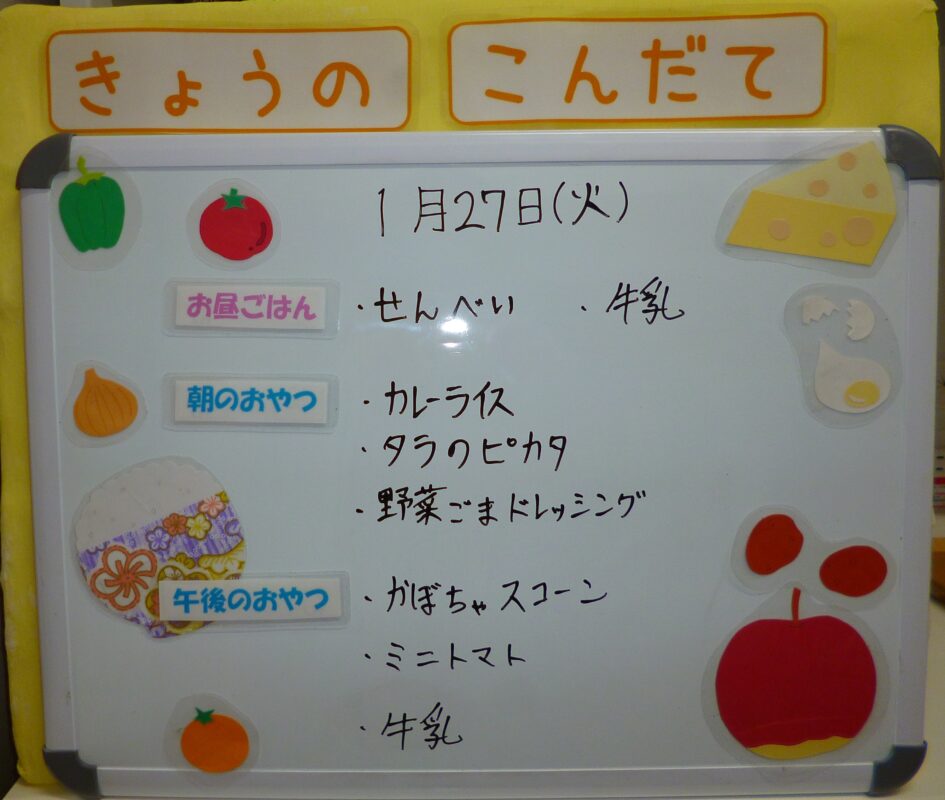 きょうの こんだて
1月27日(火)
お昼ごはん ・せんべい ・牛乳
朝のおやつ ・カレーライス
・タラのピカタ
・野菜ごまドレッシング
午後のおやつ ・かぼちゃスコーン
・ミニトマト
・牛乳